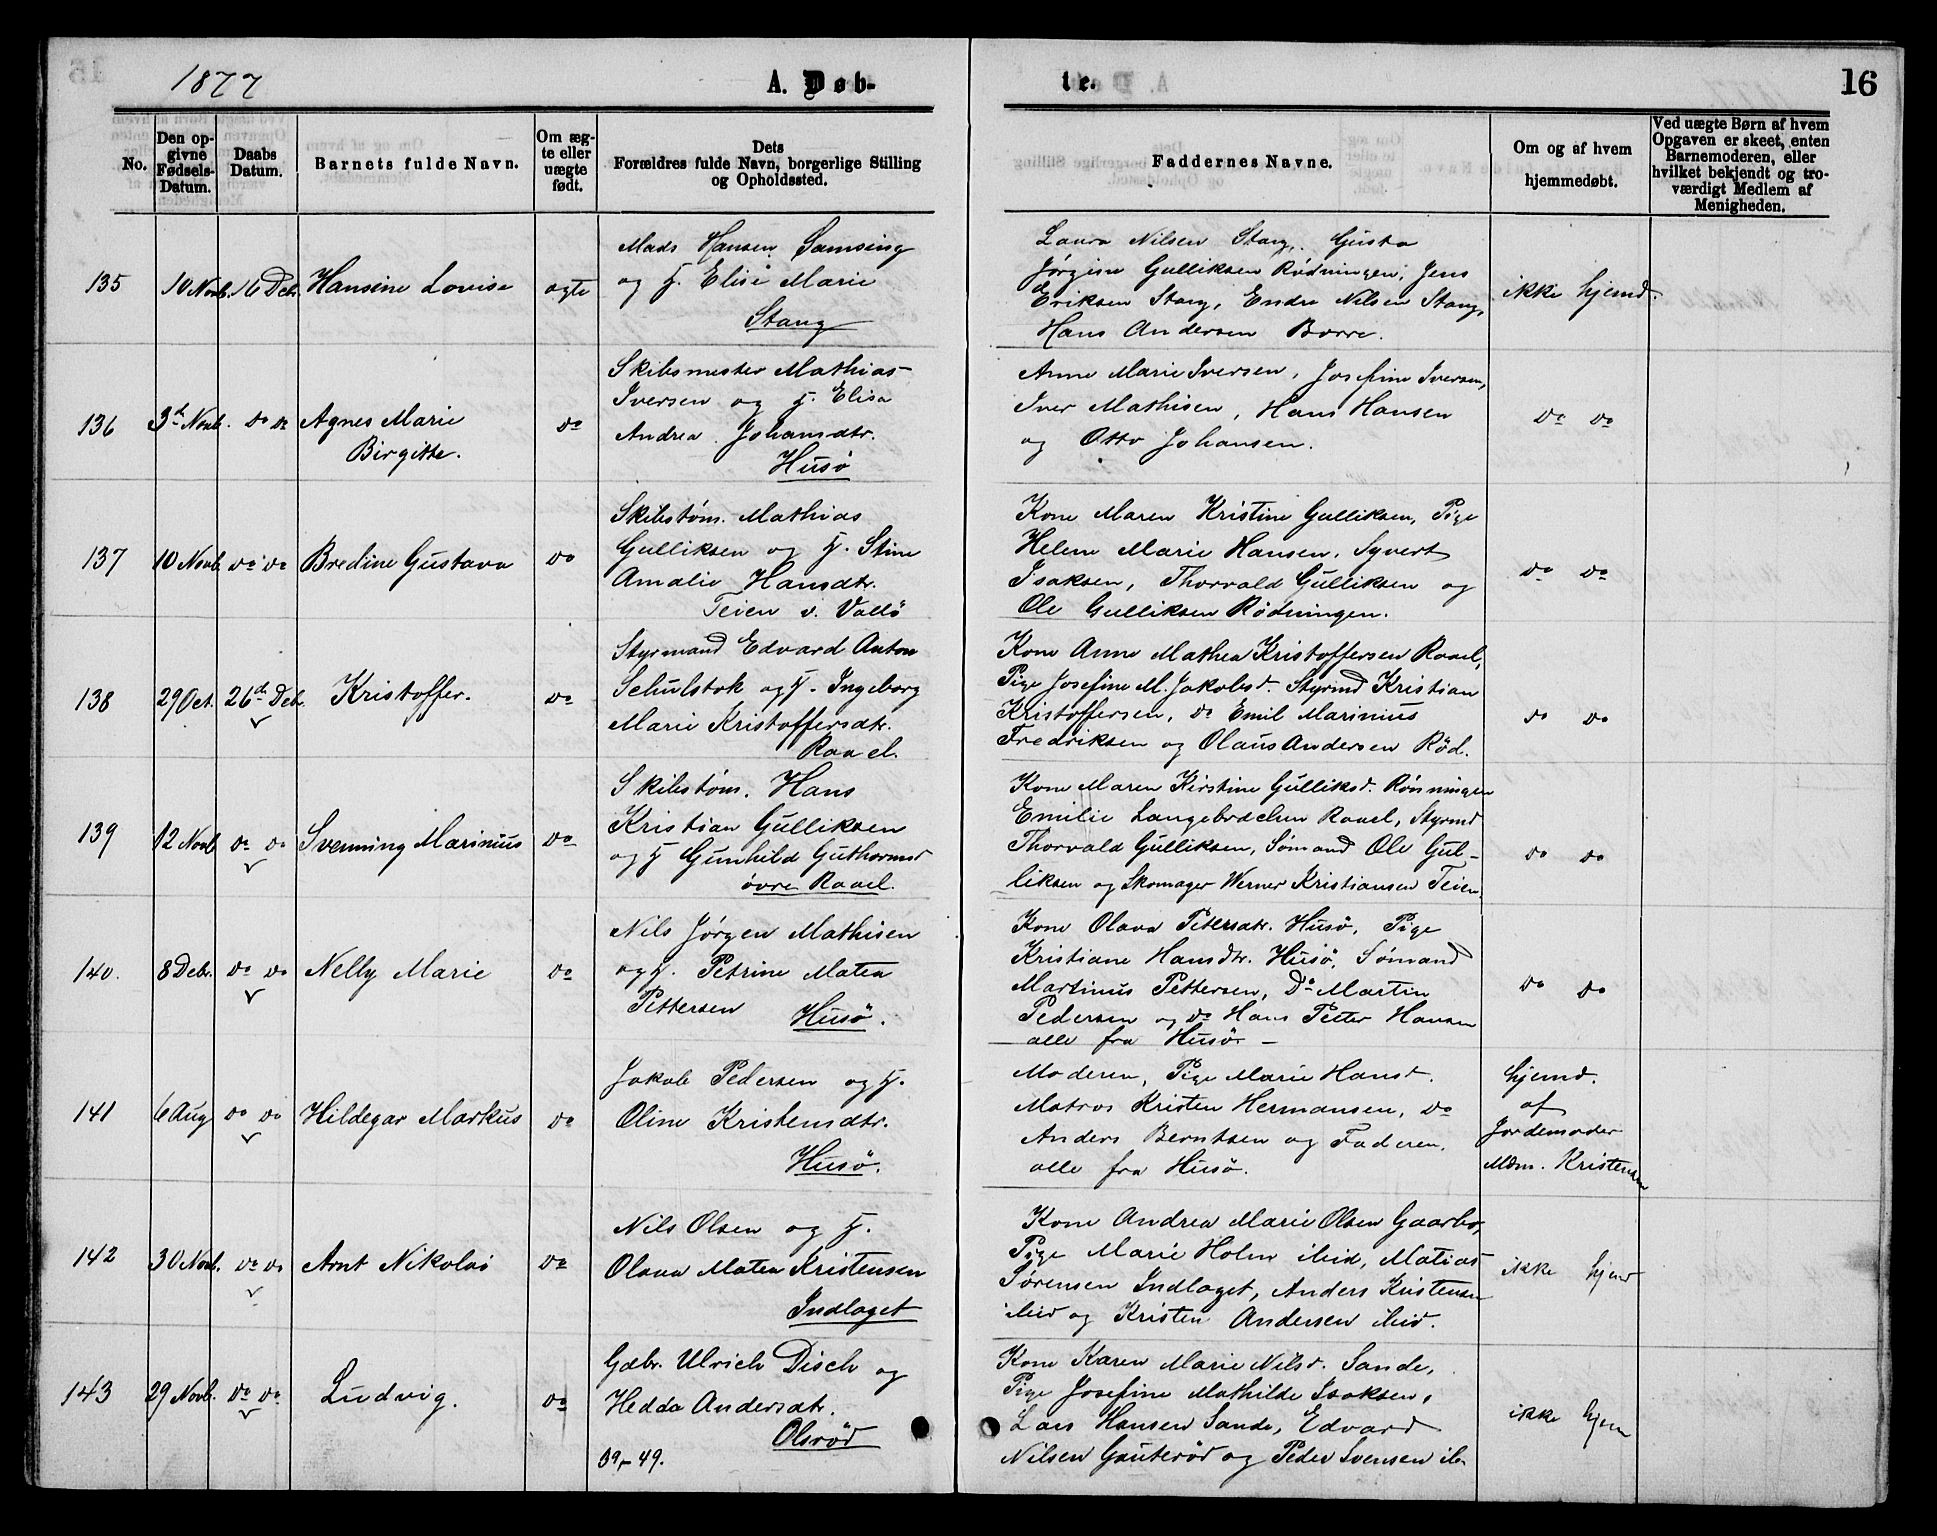 1877
A. Døb-
te.
16
No.
Den op-
givne
Fødsels-
Datum.
Daabs
Datum.
Barnets fulde Navn.
Om æg-
te eller
uægte
født.
Dets
Forældres fulde Navn, borgerlige Stilling
og Opholdssted.
Faddernes Navne.
Om og af hvem
hjemmedøbt.
Ved uægte Børn af hvem
Opgaven er skeet, enten
Barnemoderen, eller
hvilket bekjendt og tro-
værdigt Medlem af
Menigheden.
135 10 Novb. 16 Debr. Hansine Lovise ægte
Mads Hansen Samsing
og H. Elise Marie
Stang
Laura Nilsen Stang, Gusta
Jørgine Gulliksen Rødningen, Jens
Eriksen Stang, Endre Nilsen Stang,
Hans Andersen Borre.
ikke hjemd.
136 3d Novb. do do Agnes Marie
Birgitte. do
Skibsmester Mathias
Iversen og H. Elisa
Andrea Johansdtr.
Husö
Anne Marie Iversen, Josefine Iversen,
Iver Mathisen, Hans Hansen
og Otto Johansen.
do do
137 10 Novb do do Bredine Gustava do
Skibstøm. Mathias
Gulliksen og H. Stine
Amalie Hansdtr.
Teien v. Vallö
Kone Maren Kristine Gulliksen, Pige
Helene Marie Hansen, Syvert
Isaksen, Thorvald Gulliksen og
Ole Gulliksen Rødningen.
do do
138 29 Oct. 26d Deb. Kristoffer. do
Styrmand Edvard Anton
Schulstok og H. Ingeborg
Marie Kristoffersdtr.
Raael.
Kone Anne Mathea Kristoffersen Raael,
Pige Josefine M. Jakobsd. Styrmd Kristian
Kristoffersen, do Emil Marinius
Fredriksen og Olaus Andersen Röd.
do do
139 12 Novb do do Svenning Marinius do
Skibstøm. Hans
Kristian Gulliksen
og H Gunhild Guthormsd
øvre Raael.
Kone Maren Kirstine Gulliksd. Rönningen
Emilie Langebrechen Raael, Styrmd
Thorvald Gulliksen, Sömand Ole Gul-
liksen og Skomager Werner Kristiansen Teien.
do do
140. 8 Debr. do do Nelly Marie do
Nils Jørgen Mathisen
og H. Petrine Matea
Pettersen Husö.
Kone Olava Petersdtr. Husö, Pige
Kristiane Hansdtr. Husö, Sömand
Martinus Pettersen, Do Martin
Pedersen og do Hans Petter Hansen
alle fra Husö -
do do
141 6 Aug do do Hildegar Markus do
Jakob Pedersen og H.
Oline Kristensdtr.
Husö.
Moderen, Pige Marie Hansd.
Matros Kristen Hermansen, do
Anders Berntsen og Faderen,
alle fra Husö.
hjemd.
af
Jordemoder
Mdm. Kristensen
142 30 Novb. do do Arnt Nikolai do
Nils Olsen og H.
Olava Matea Kristensen
Indlaget
Kone Andrea Marie Olsen Gaarbo,
Pige Marie Holm ibid, Matias
Sørensen Indlaget, Anders Kristensen
ibid og Kristen Andersen ibid.
ikke hjemd
143 29 Novb. do do Ludvig. do
Gdbr. Ulrich Disch og
Hedda Andersdtr.
Olsröd
39-49.
Kone Karen Marie Nilsd. Sande,
Pige Josefine Mathilde Isaksen,
Lars Hansen Sande, Edvard
Nilsen Gauteröd og Peder Svensen ib.
ikke hjem